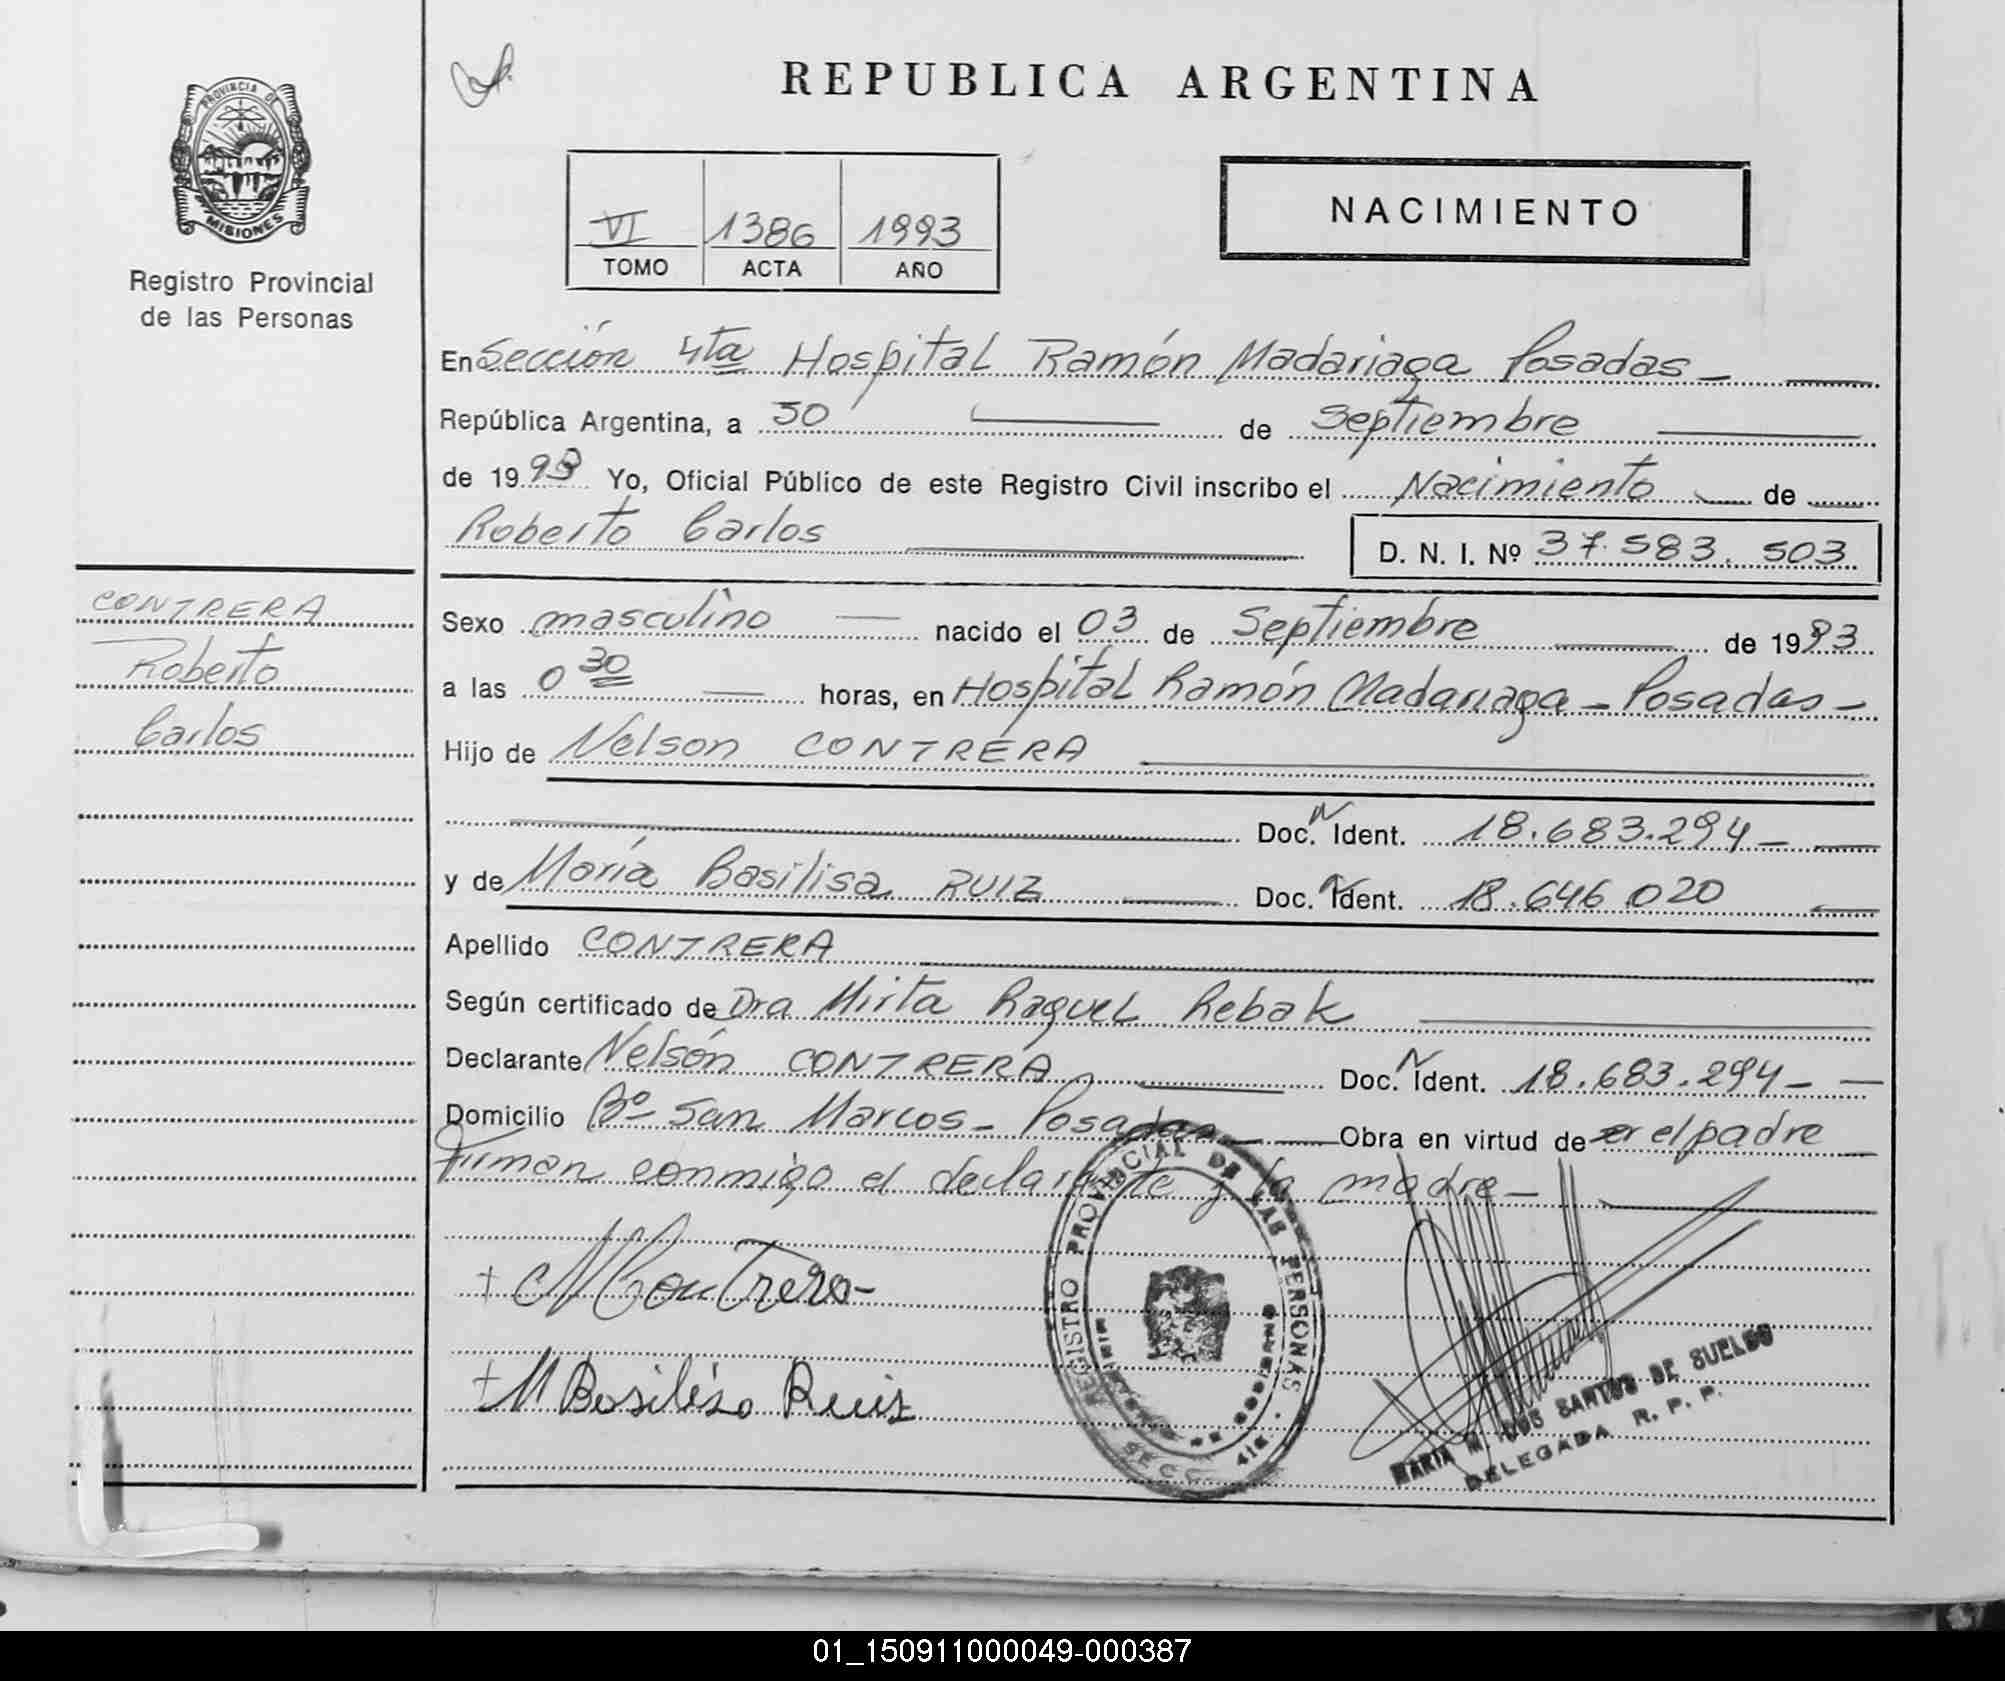 REPUBLICA ARGENTINA
PROVINCIA DE
MISIONES
Registro Provincial
de las Personas
VI 1386 1993
TOMO ACTA AÑO
NACIMIENTO
En Sección 4ta Hospital Ramón Madariaga Posadas
República Argentina, a 30 de Septiembre
de 1993 Yo, Oficial Público de este Registro Civil inscribo el Nacimiento de
Roberto Carlos D. N. I. Nº 37.583.503
CONTRERA
Roberto
Carlos
Sexo masculino nacido el 03 de Septiembre de 1993
a las 0 30 horas, en Hospital Ramón Madariaga - Posadas -
Hijo de Nelson CONTRERA
Doc. N Ident. 18.683.294 -
y de María Basilisa RUIZ Doc. N Ident. 18.646.020
Apellido CONTRERA
Según certificado de Dra Mirta Raquel Rebak
Declarante Nelsón CONTRERA Doc. N Ident. 18.683.294 -
Domicilio Bº San Marcos - Posadas Obra en virtud de er el padre
Firman conmigo el declarante y la madre -
NContrera -
M Basilisa Ruiz
REGISTRO PROVINCIAL DE LAS PERSONAS
SECC. 4ta
MARIA M. DOS SANTOS DE SUELDO
DELEGADA R. P. P.
01_150911000049-000387